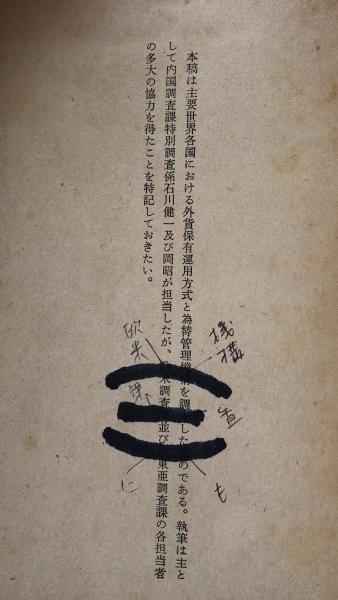 本稿は主要世界各国における外貨保有運用方式と為替管理機構を調したのである。執筆は主と
して内国調査課特別調査係石川健一及び岡昭が担当したが、米調査並び東亜調査課の各担当者
の多大の協力を得たことを特記しておきたい。
機構
査
も
欧米
課
に